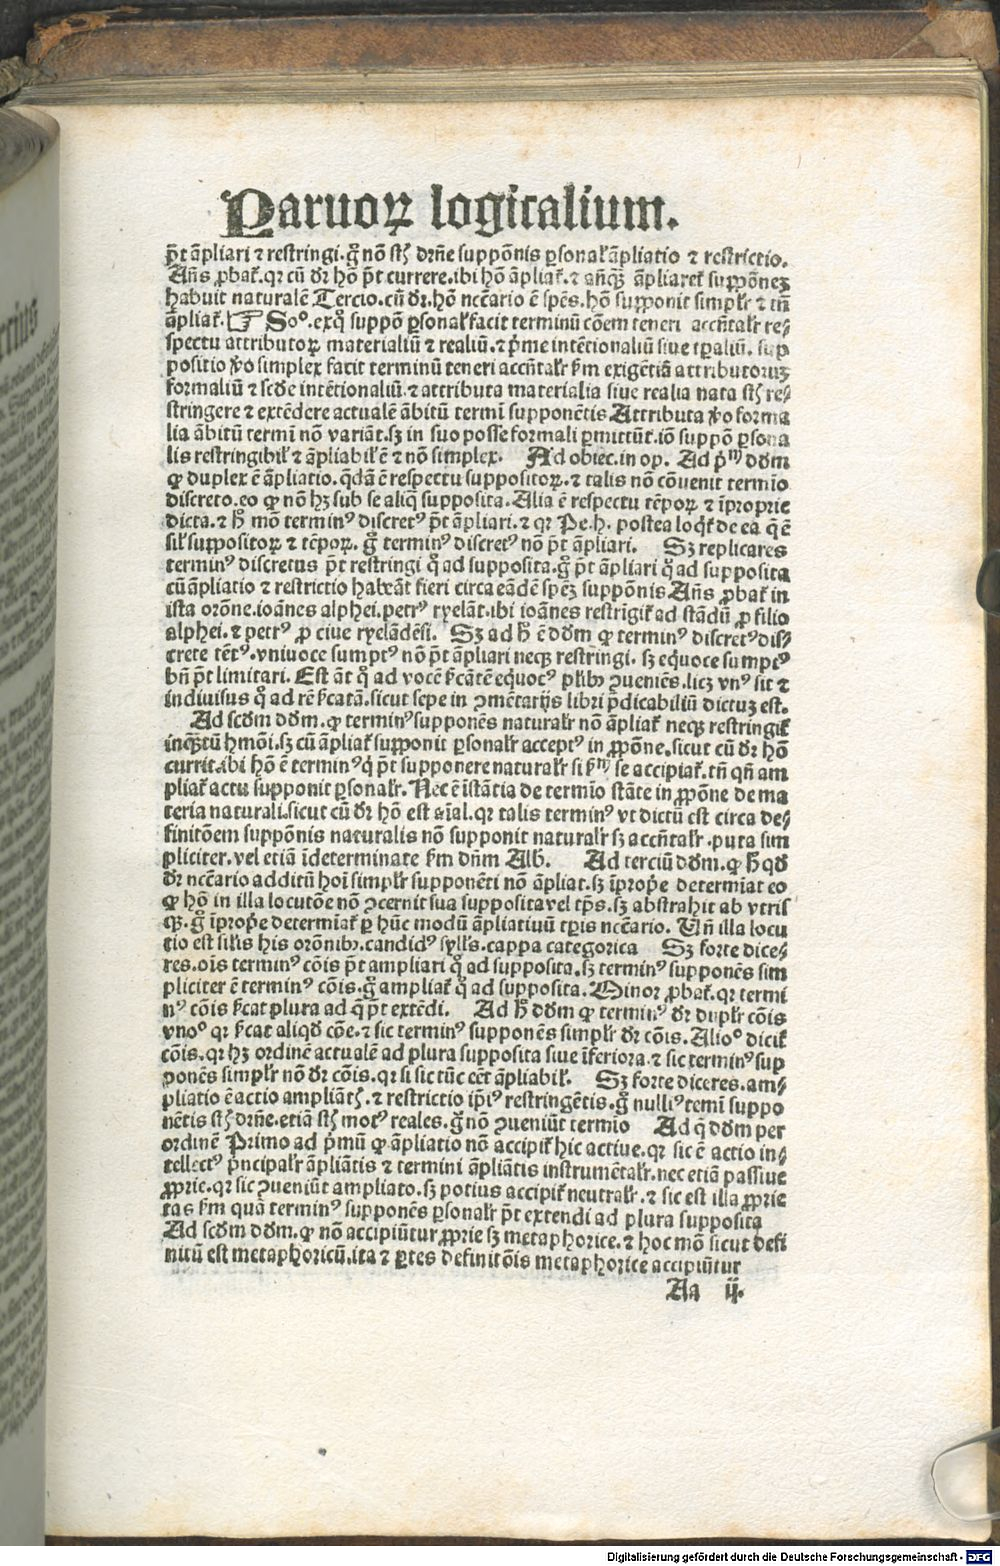 Paruoꝝ logicalium.
p̄t āpliari ⁊ restringi.g̊ nō st̄ drn̄e suppōnis ꝑsonal̓ āpliatio ⁊ restrictio.
Añs ꝓbat̓.qꝛ cū dr̄ hō p̄t currere.ibi hō āpliat̓.⁊ anq̄ꝫ āpliaret̓ suppōneꝫ
habuit naturalē Tercio.cū dr̄.hō nc̄cario ē spēs.hō supponit simplr̓ ⁊ tn̄
āpliat̓. ☞ Soᵒ.exq̊ suppō ꝑsonal̓ facit terminū cōem teneri accn̄talr̓ re⸗
spectu attributoꝝ materialiū ⁊ realiū.⁊ p̓me intētionaliū siue tꝑaliū. sup
positio ꝟo simplex facit terminū teneri accn̄talr̓ ẜm exigētiā attributoruꝫ
formaliū ⁊ scd̓e intētionaliū.⁊ attributa materialia siue realia nata st̄ re⸗
stringere ⁊ extēdere actualē ābitū termī supponētis Attributa ꝟo forma
lia ābitū termī nō variāt.sꝫ in suo posse formali ꝑmittūt.iō suppō ꝑsona
lis restringibil̓ ⁊ āpliabil̓ ē ⁊ nō simplex. Ad obiec.in op. Ad p̓ᵐ dd̄m
ꝙ duplex ē āpliatio.q̄dā ē respectu suppositoꝝ.⁊ talis nō cōuenit termīo
discreto.eo ꝙ nō hꝫ sub se aliq̄ supposita.Alia ē respectu tēpoꝝ ⁊ īproprie
dicta.⁊ h̄ mō terminꝰ discretꝰ p̄t āpliari.⁊ qꝛ Pe.h. postea loqt̓ de ea q̄ ē
sil̓ suppositoꝝ ⁊ tēpoꝝ. g̊ terminꝰ discretꝰ nō p̄t āpliari. Sꝫ replicares
terminꝰ discretus p̄t restringi q̊ ad supposita.g̊ p̄t āpliari q̊ ad supposita
cū āpliatio ⁊ restrictio habeāt fieri circa eādē spēꝫ suppōnis Añs ꝓbat̓ in
ista orōne.ioānes alphei.petrꝰ ryelāt.ibi ioānes restrīgit̓ ad stādū ꝓ filio
alphei.⁊ petrꝰ ꝓ ciue ryelādēsi. Sꝫ ad h̄ ē dd̄m ꝙ terminꝰ discretꝰ dis⸗
crete tētꝰ.vniuoce sumptꝰ nō p̄t āpliari neqꝫ restringi. sꝫ eq̄uoce sumptꝰ
bn̄ p̄t limitari. Est āt q̊ ad vocē ẜcātē equocꝰ pl̓ibꝰ ꝯueniēs.licꝫ vnꝰ sit ⁊
indiuisus q̊ ad rē ẜcatā.sicut sepe in ꝯmētarijs libri p̄dicabiliū dictuꝫ est.
Ad scd̄m dd̄m.ꝙ terminꝰ supponēs naturalr̓ nō āpliat̓ neqꝫ restringit̓
inq̄ꝫtū hmōi.sꝫ cū āpliat̓ supponit ꝑsonalr̓ acceptꝰ in ꝓpōne.sicut cū dr̄ hō
currit.ibi hō ē terminꝰ q̓ p̄t supponere naturalr̓ si ẜᵐ se accipiat̓.tn̄ qn̄ am
pliat̓ actu supponit ꝑsonalr̓.Nec ē īstātia de termīo stāte in ꝓpōne de ma
teria naturali.sicut cū dr̄ hō est aīal.qꝛ talis terminꝰ vt dictū est circa de⸗
finitōem suppōnis naturalis nō supponit naturalr̓ sꝫ accn̄talr̓.puta sim
pliciter.vel etiā īdeterminate ẜm dn̄m Alb̄. Ad terciū dd̄m.ꝙ h̄ qd̄
dr̄ nc̄cario additū hoī simplr̓ supponēti nō āpliat.sꝫ īprop̓e determīat eo
ꝙ hō in illa locutōe nō ꝯcernit sua supposita vel tp̄s. sꝫ abstrahit ab vtris
qꝫ.g̊ īprop̓e determīat̓ ꝑ hūc modū āpliatiuū tꝑis nc̄cario. Vn̄ illa locu
tio est sil̓is his orōnibꝰ.candidꝰ syll̓s.cappa categorica Sꝫ forte dice⸗
res.oīs terminꝰ cōis p̄t ampliari q̊ ad supposita.sꝫ terminꝰ supponēs sim
pliciter ē terminꝰ cōis.g̊ ampliat̓ q̊ ad supposita. Minor ꝓbat̓.qꝛ termi
nꝰ cōis ẜcat plura ad q̄ p̄t extēdi. Ad h̄ dd̄m ꝙ terminꝰ dr̄ duplr̓ cōis
vnoᵒ qꝛ ẜcat aliqd̄ cōe.⁊ sic terminꝰ supponēs simplr̓ dr̄ cōis.Alioᵒ dicit̓
cōis.qꝛ hꝫ ordinē actualē ad plura supposita siue īferiora.⁊ sic terminꝰ sup
ponēs simplr̓ nō dr̄ cōis.qꝛ si sic tūc cēt āpliabil̓. Sꝫ forte diceres.am⸗
pliatio ē actio ampliāt̄.⁊ restrictio ip̄iꝰ restringētis.g̊ nulliꝰ temī suppo
nētis st̄ drn̄e.etiā st̄ motꝰ reales.g̊ nō ꝯueniūt termio Ad q̄ dd̄m per
ordinē Primo ad p̓mū ꝙ āpliatio nō accipit̓ hic actiue.qꝛ sic ē actio in⸗
tellectꝰ p̓ncipalr̓ āpliātis ⁊ termini āpliātis instrumētalr̓.nec etiā passiue
ꝓprie.qꝛ sic ꝯueniūt ampliato.sꝫ potius accipit̓ neutralr̓.⁊ sic est illa ꝓprie
tas ẜm quā terminꝰ supponēs ꝑsonalr̓ p̄t extendi ad plura supposita
Ad scd̄m dd̄m.ꝙ nō accipiūtur ꝓprie sꝫ metaphorice.⁊ hoc mō sicut defi
nitū est metaphoricū.ita ⁊ ꝑtes definitōis metaphorice accipiūtur
Aa ij.
Digitalisierung gefördert durch die Deutsche Forschungsgemeinschaft - DFG